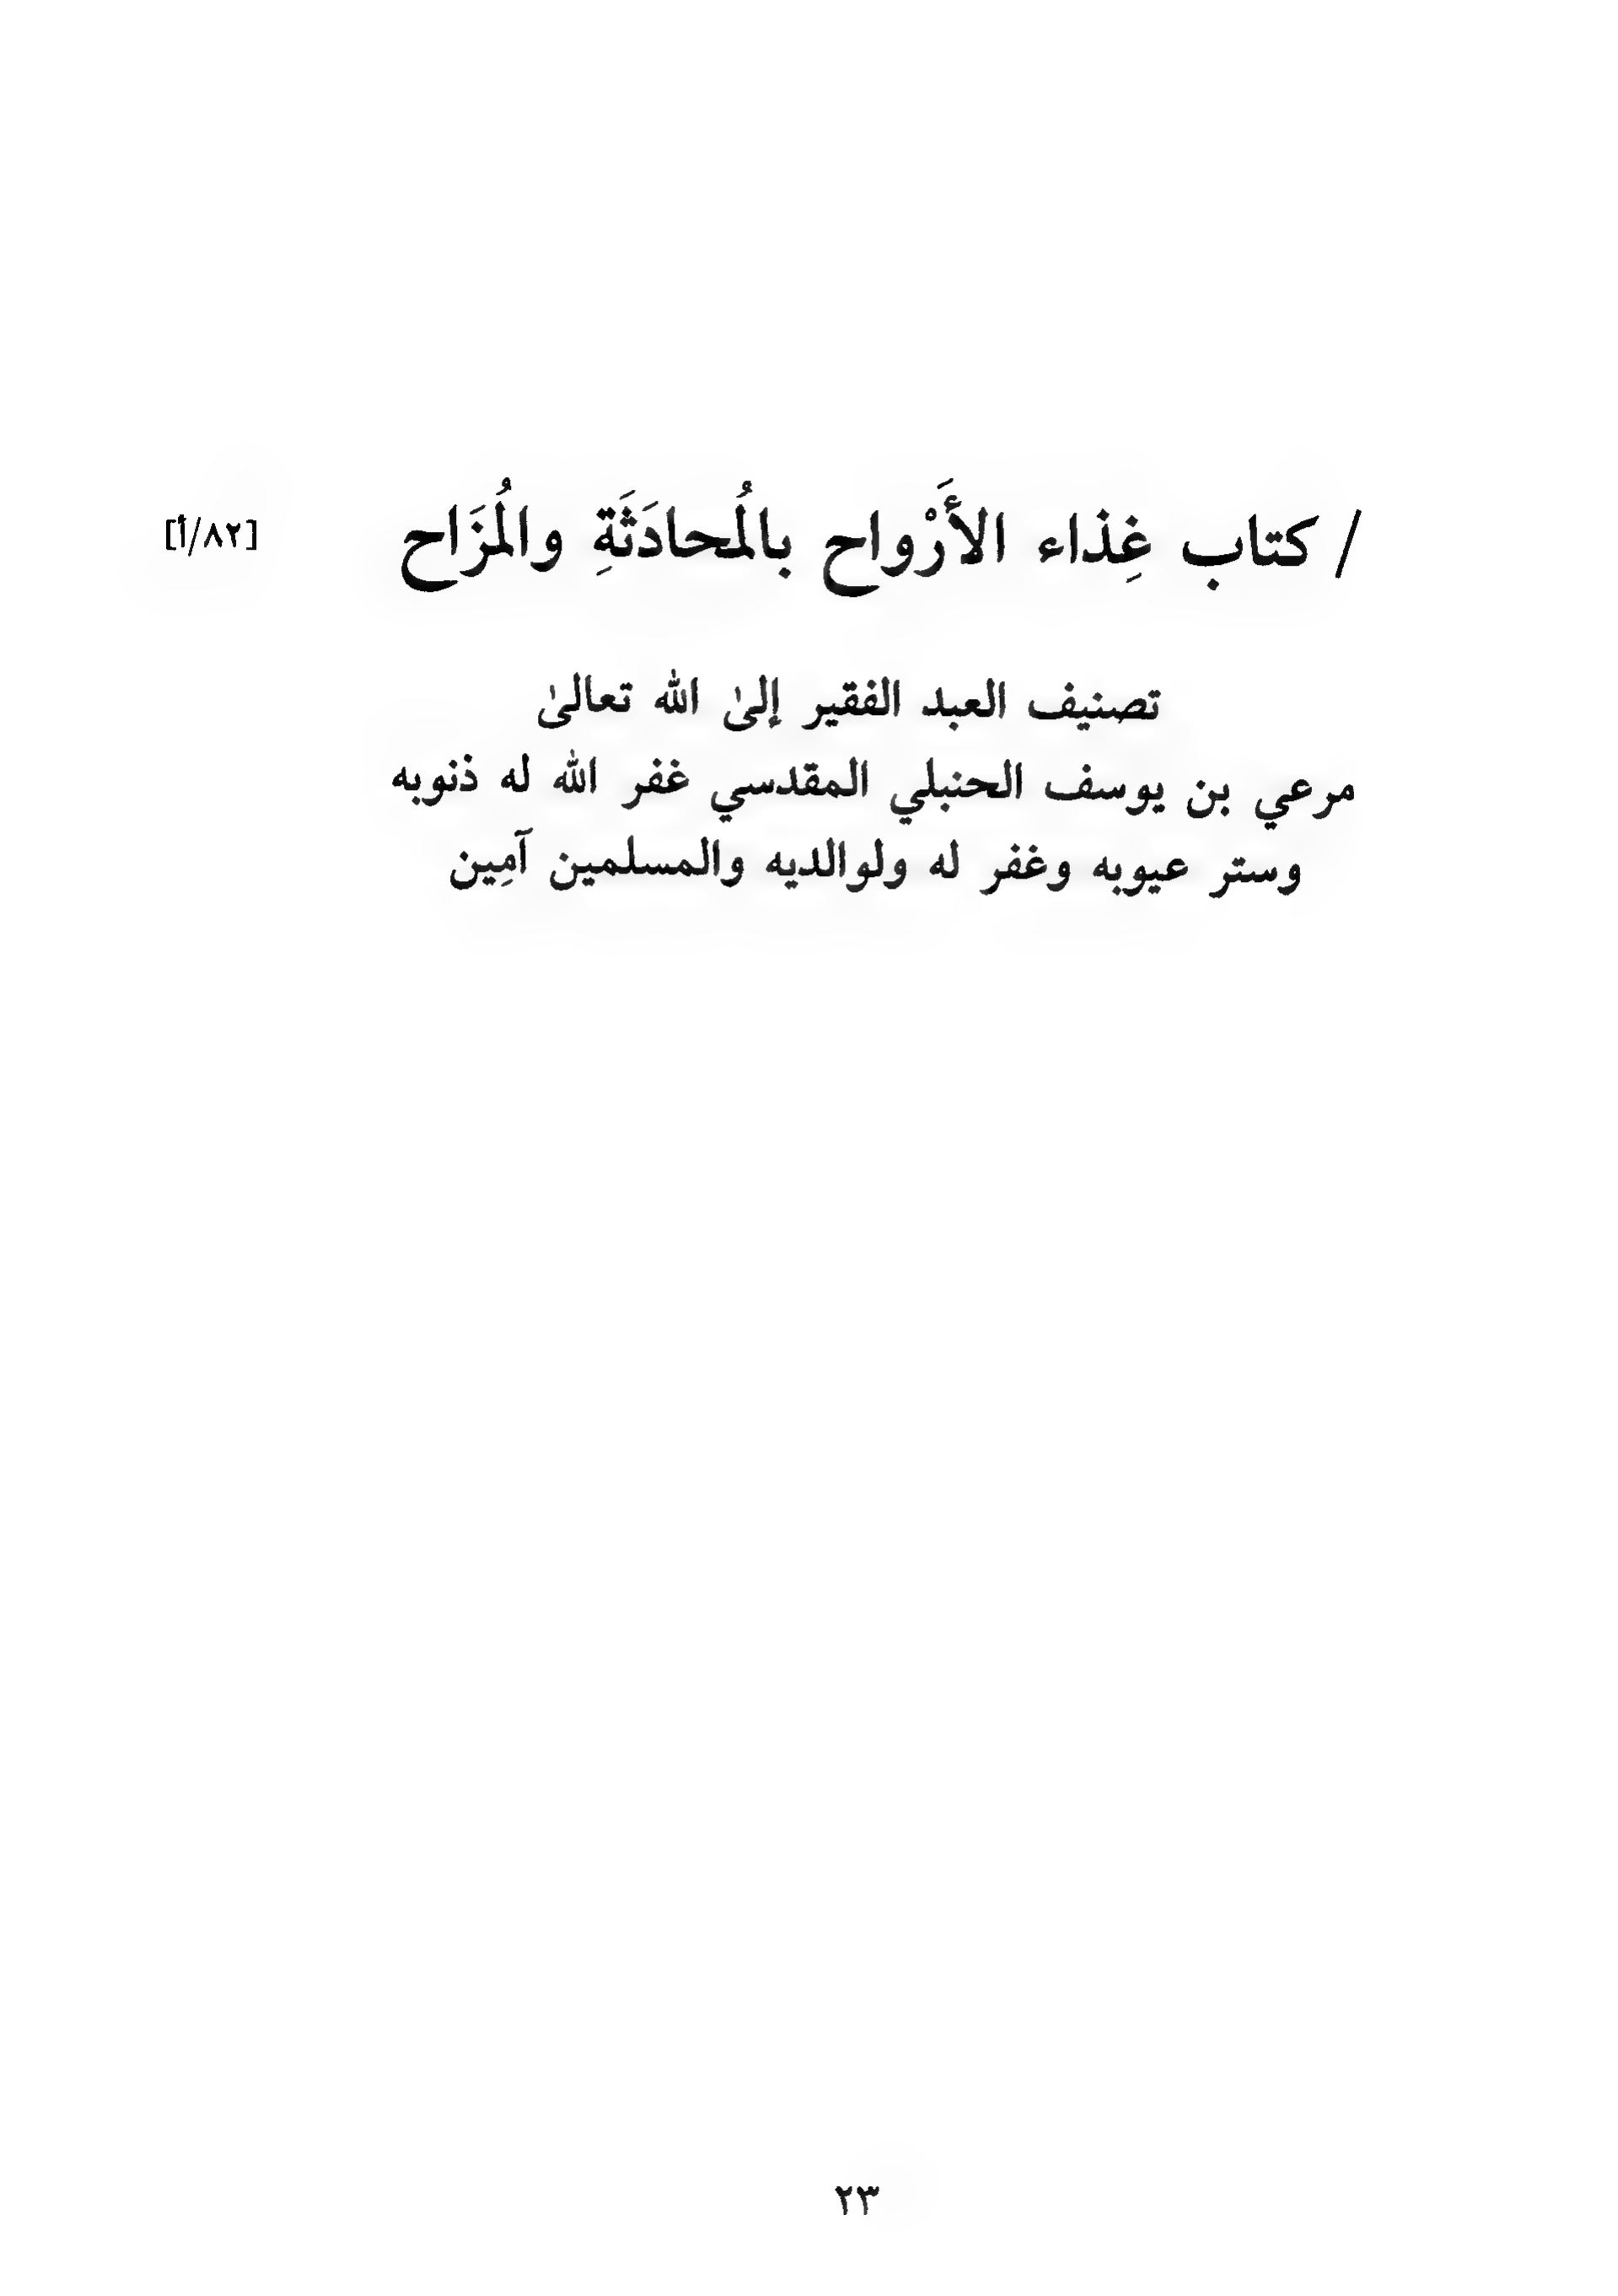 / كتاب غِذاء الأَرْواح بالُمحادَثَةِ والُمزَاح [٨٢/أ]
تصنيف العبد الفقير إلىٰ الله تعالىٰ
مرعي بن يوسف الحنبلي المقدسي غفر الله له ذنوبه
وستر عيوبه وغفر له ولوالديه والمسلمين آمِين
٢٣